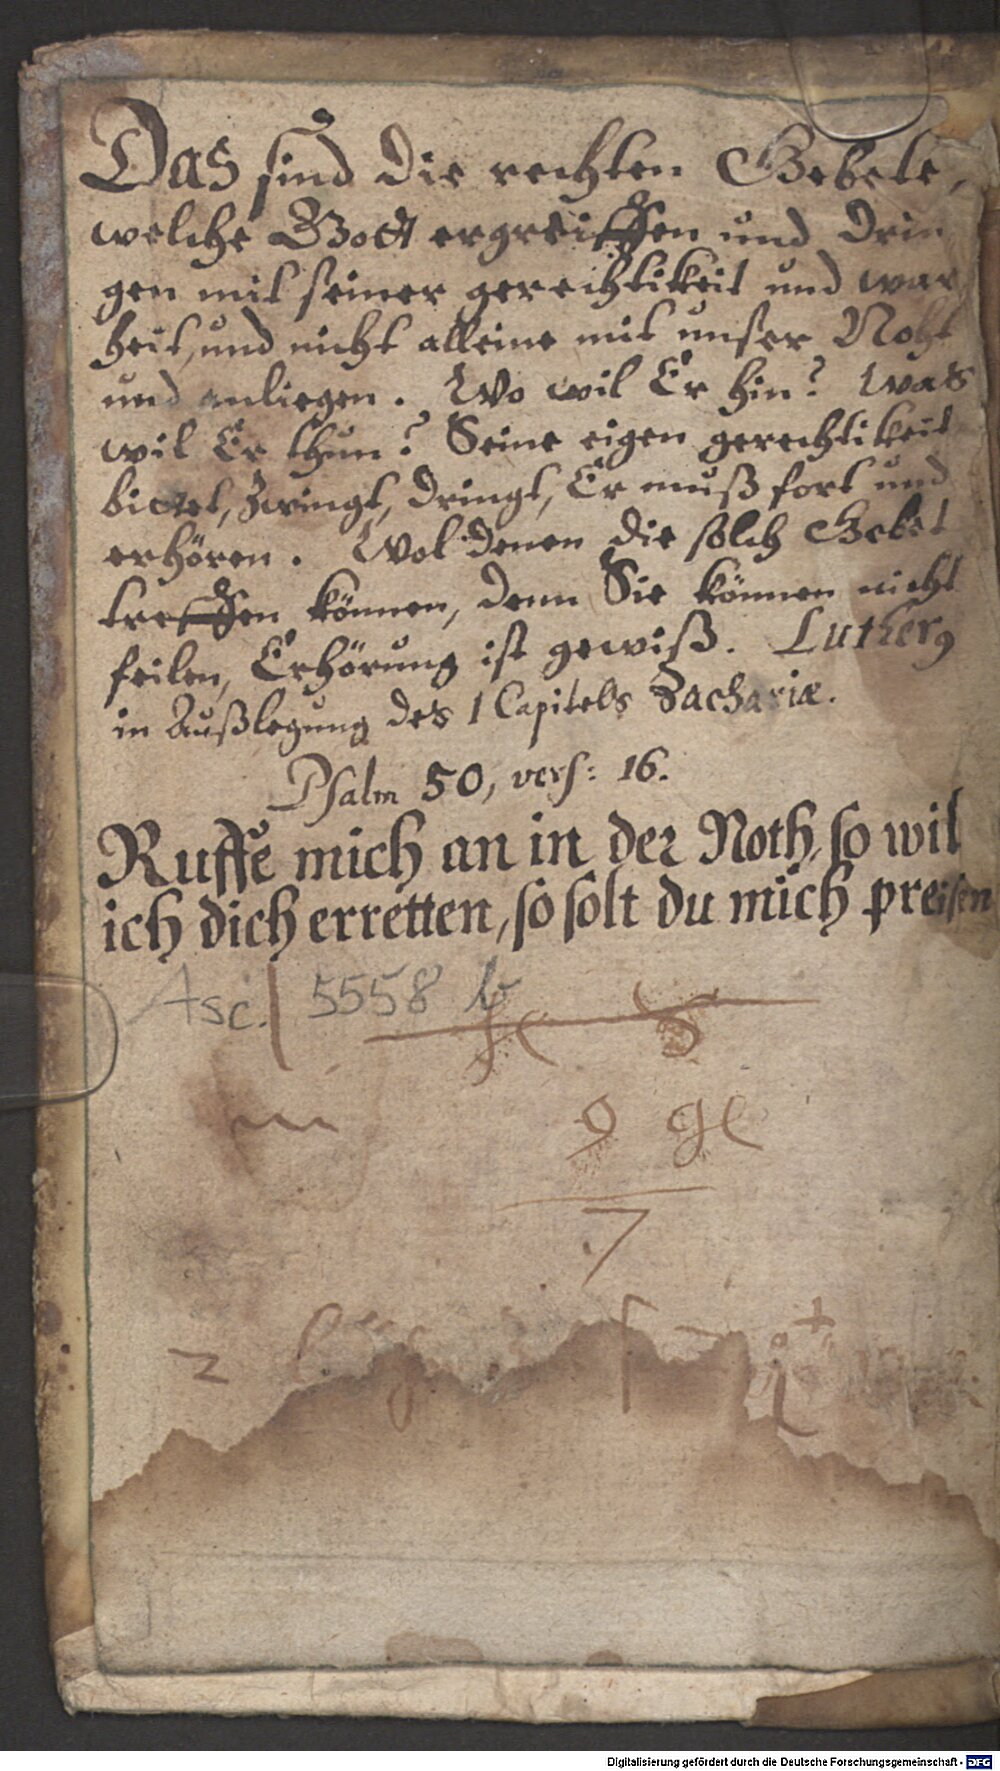 Das sind die rechten Gebete,
welche Gott ergreiffen und drin
gen mit seiner gerechtikeit und war
heit, und nicht alleine mit unser Noht
und anliegen. Wo wil Er hin? Was
wil Er thun? Seine eigen gerechtikeit
bietet, zwingt, dringt, Er muß fort und
erhören. Wol denen die solch Gebet
treffen können, denn Sie können nicht
feilen, Erhörung ist gewiß. Lutherꝰ
in Außlegung des 1 Capitels Zachariæ.
Psalm 50, vers: 16.
Ruffe mich an in der Noth, so wil
ich dich erretten, so solt du mich preisen
Asc. 5558 b
7
Digitalisierung gefördert durch die Deutsche Forschungsgemeinschaft - DFG